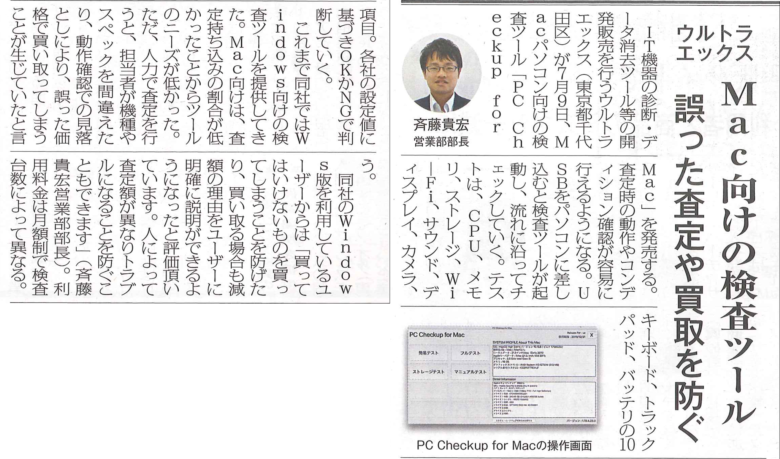 ウルトラ
エックス
Mac向けの検査ツール
誤った査定や買取を防ぐ
IT機器の診断・デ
ータ消去ツール等の開
発販売を行うウルトラ
エックス（東京都千代
田区）が7月9日、M
acパソコン向けの検
査ツール「PC Ch
eckup for
斉藤貴宏
営業部部長
Mac」を発売する。
査定時の動作やコンデ
ィション確認が容易に
行えるようになる。U
SBをパソコンに差し
込むと検査ツールが起
動し、流れに沿ってチ
ェックしていく。テス
トは、CPU、メモ
リ、ストレージ、Wi
ーFi、サウンド、デ
ィスプレイ、カメラ、
キーボード、トラック
パッド、バッテリの10
PC Checkup for Mac
簡易テスト
フルテスト
ストレージテスト
マニュアルテスト
PC Checkup for Macの操作画面
項目。各社の設定値に
基づきOKかNGで判
断していく。
これまで同社ではW
indows向けの検
査ツールを提供してき
た。Mac向けは、査
定持ち込みの割合が低
かったことからツール
のニーズが低かった。
ただ、人力で査定を行
うと、担当者が機種や
スペックを間違えた
り、動作確認での見落
としにより、誤った価
格で買い取ってしまう
ことが生じていたと言
う。
同社のWindow
s版を利用しているユ
ーザーからは「買って
はいけないものを買っ
てしまうことを防げた
り、買い取る場合も減
額の理由をユーザーに
明確に説明ができるよ
うになったと評価頂い
ています。人によって
査定額が異なりトラブ
ルになることを防ぐこ
ともできます」（斉藤
貴宏営業部部長）。利
用料金は月額制で検査
台数によって異なる。